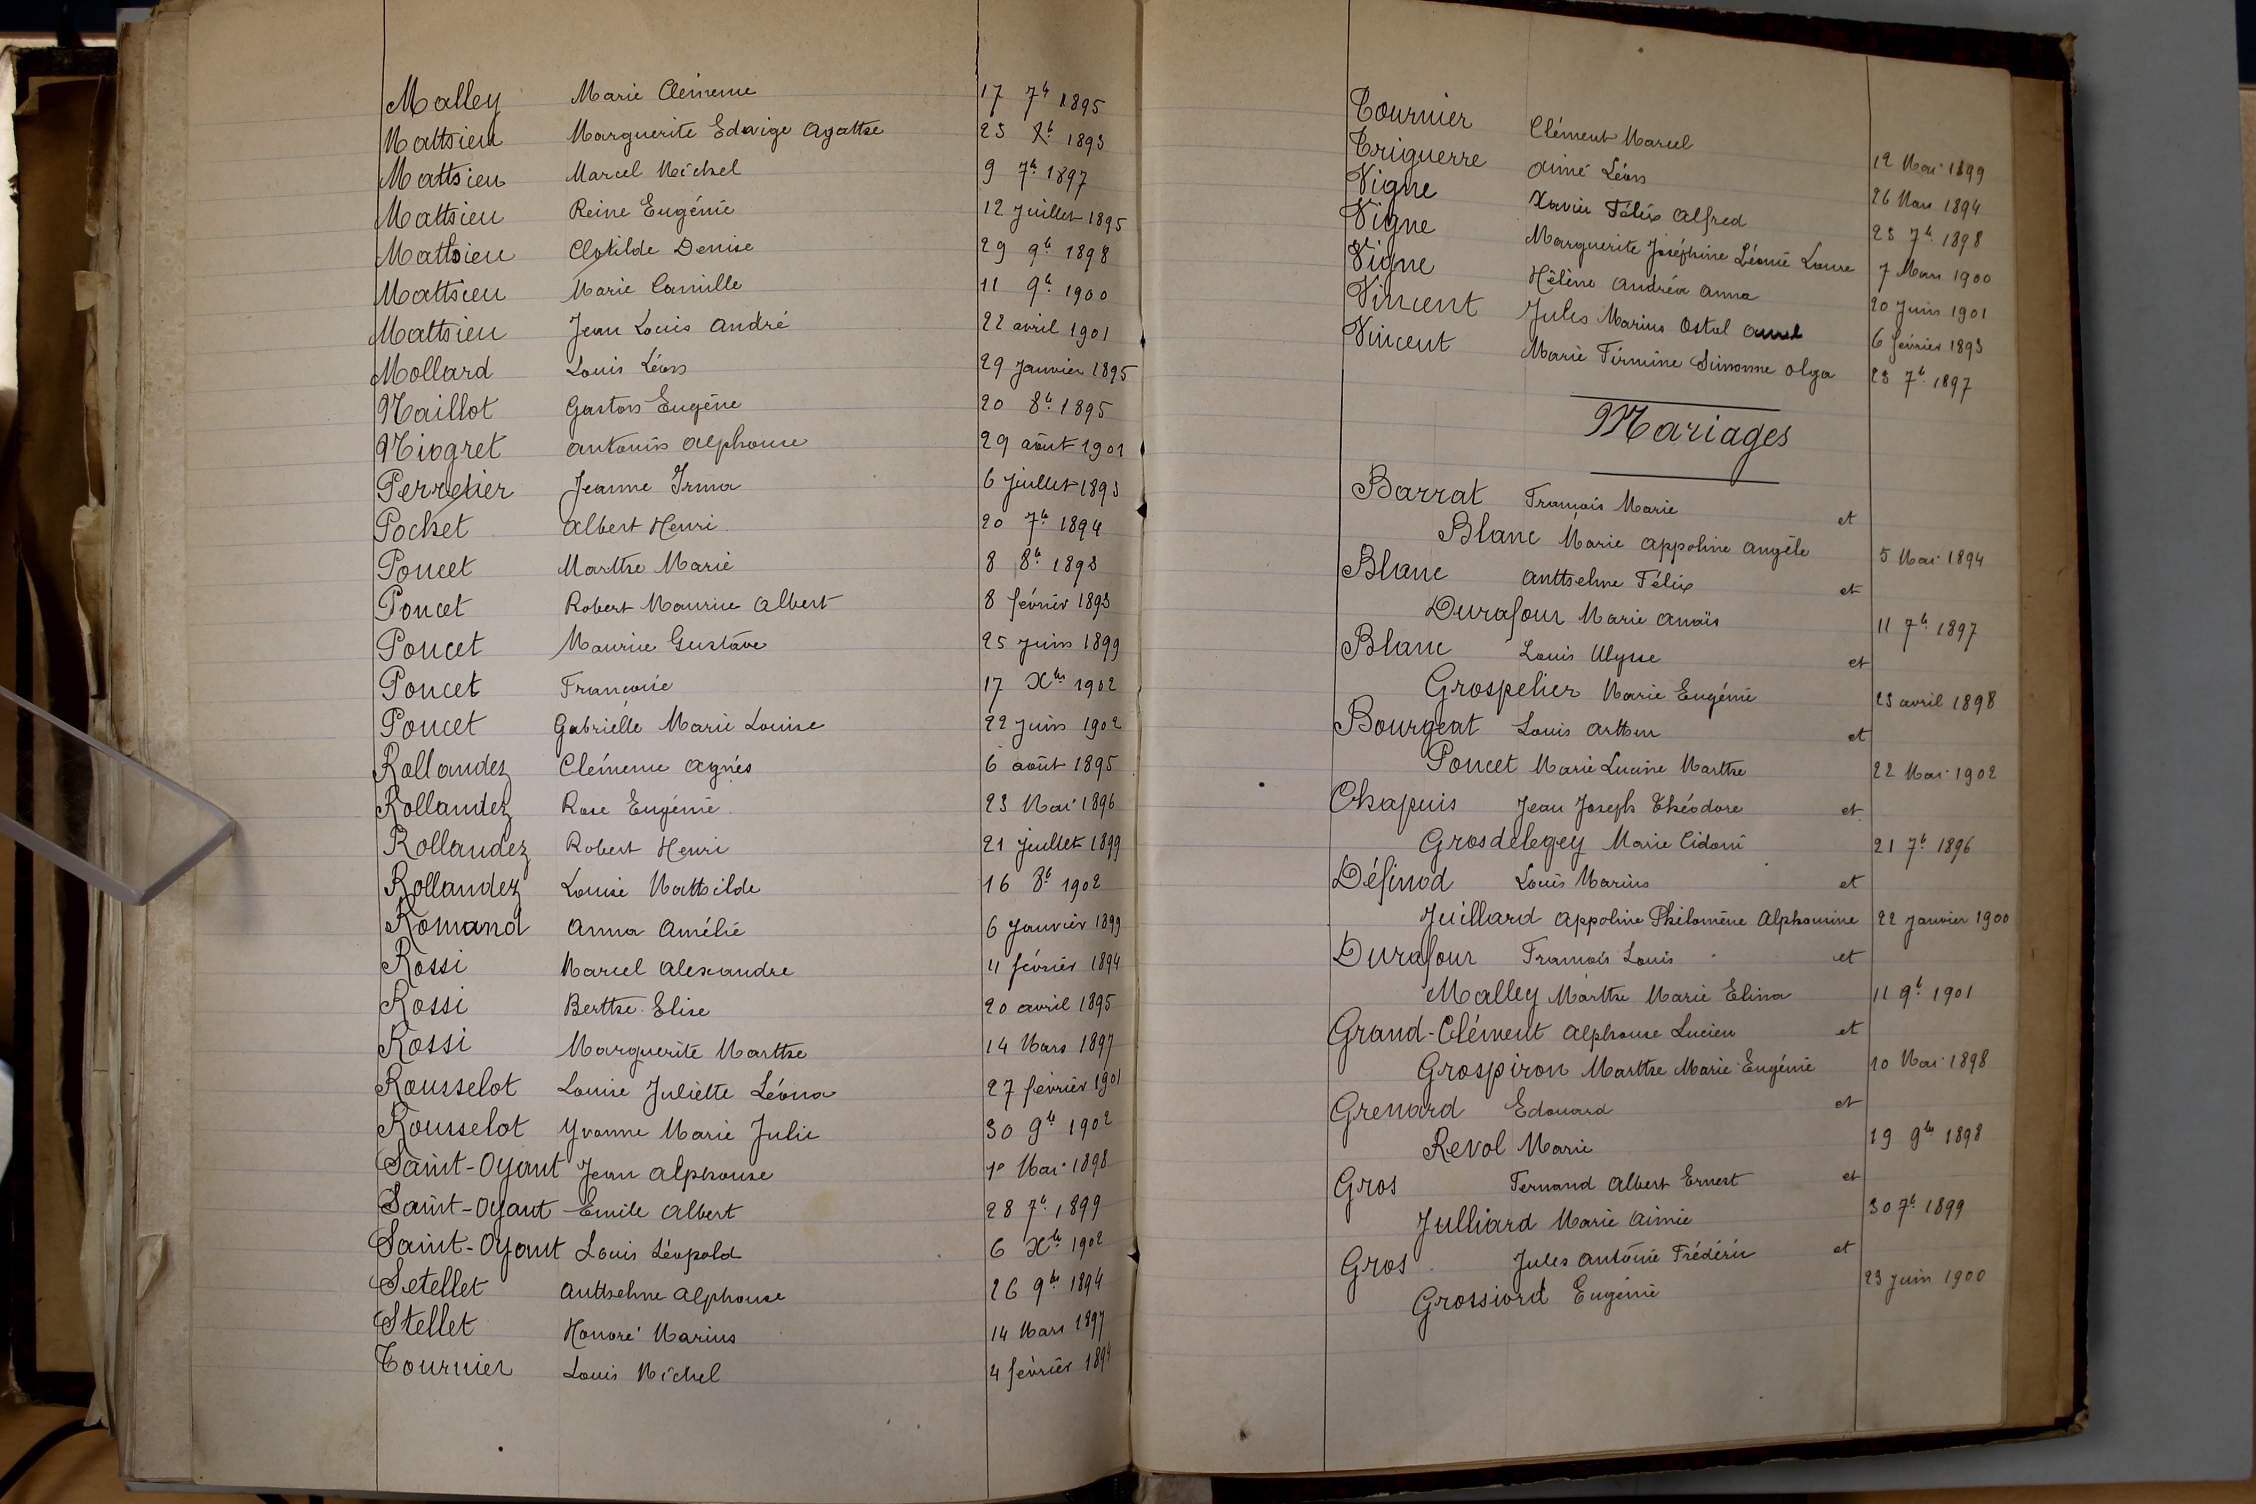 Malley Marie Clémence 17 7b 1895
Mathieu Marguerite Edvige Agathe 23 Xb 1893
Mathieu Marcel Michel 9 7b 1897
Mathieu Reine Eugénie 12 Juillet 1895
Mathieu Clotilde Denise 29 9b 1898
Mathieu Marie Camille 11 9b 1900
Mathieu Jean Louis André 22 avril 1901
Mollard Louis Léon 29 Janvier 1895
Maillot Gaston Eugène 20 8b 1895
Miogret Antonin Alphonse 29 août 1901
Perretier Jeanne Irma 6 Juillet 1893
Pochet Albert Henri 20 7b 1894
Poncet Marthe Marie 8 8b 1893
Poncet Robert Maurice Albert 8 février 1893
Poncet Maurice Gustave 25 Juin 1899
Poncet Françoise 17 Xbre 1902
Poncet Gabrielle Marie Louise 22 Juin 1902
Rollandez Clémence Agnès 6 août 1895
Rollandez Rose Eugénie 23 Mai 1896
Rollandez Robert Henri 21 Juillet 1899
Rollandez Louise Mathilde 16 8b 1902
Romand Anna Amélie 6 Janvier 1899
Rossi Marcel Alexandre 11 février 1894
Rossi Berthe Elise 20 avril 1895
Rossi Marguerite Marthe 14 Mars 1897
Rousselot Louise Juliette Léona 27 février 1901
Rousselot Yvonne Marie Julie 30 9b 1902
Saint-Oyant Jean Alphonse 1e Mai 1898
Saint-Oyant Emile Albert 28 7b 1899
Saint-Oyant Louis Léopold 6 Xbre 1902
Setellet Anthelme Alphonse 26 9bre 1894
Stellet Honoré Marius 14 Mars 1897
Tournier Louis Michel 4 février 1894
Tournier Clément Marcel 12 Mai 1899
Triguerre Aimé Léon 26 Mars 1894
Vigne Xavier Félix Alfred 23 7b 1898
Vigne Marguerite Joséphine Léonie Laure 7 Mars 1900
Vigne Hélène Andréa Anna 20 Juin 1901
Vincent Jules Marius Ostal 6 février 1893
Vincent Marie Firmine Simonne Olga 23 7b 1897
Mariages
Barrat François Marie et
Blanc Marie Appoline Angèle 5 Mai 1894
Blanc Anthelme Félix et
Durafour Marie Anaïs 11 7b 1897
Blanc Louis Ulysse et
Grospelier Marie Eugénie 23 avril 1898
Bourgeat Louis Arthur et
Poncet Marie Lucine Marthe 22 Mai 1902
Chapuis Jean Joseph Théodore et
Grosdelegey Marie Cidonie 21 7b 1896
Définod Louis Marius et
Juillard Appoline Philomène Alphonsine 22 Janvier 1900
Durafour François Louis et
Malley Marthe Marie Elina 11 9b 1901
Grand-Clément Alphonse Lucien et
Grospiron Marthe Marie Eugénie 10 Mai 1898
Grenard Edouard et
Revol Marie 19 9bre 1898
Gros Fernand Albert Ernest et
Julliard Marie Aimée 30 7b 1899
Gros Jules Antoine Frédéric et
Grossiord Eugénie 23 Juin 1900